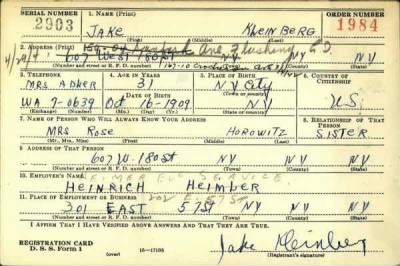 SERIAL NUMBER 1. NAME (Print) ORDER NUMBER
2903 JAKE KLEINBERG 1984
(First) (Middle) (Last)
2. ADDRESS (Print) Ave. Flushing
607 West 180 St NY NY
(Number and street or R. F. D. number) (Town) (County) (State)
3. TELEPHONE 4. AGE IN YEARS 5. PLACE OF BIRTH 6. COUNTRY OF CITIZENSHIP
MRS ADLER 31 NY City
DATE OF BIRTH (Town or county)
WA 7-0639 Oct 16-1909 NY U.S.
(Exchange) (Number) (Mo.) (Day) (Yr.) (State or country)
7. NAME OF PERSON WHO WILL ALWAYS KNOW YOUR ADDRESS 8. RELATIONSHIP OF THAT PERSON
MRS ROSE HOROWITZ SISTER
(Mr., Mrs., Miss) (First) (Middle) (Last)
9. ADDRESS OF THAT PERSON
607 W. 180 St NY NY NY
(Number and street or R. F. D. number) (Town) (County) (State)
10. EMPLOYER'S NAME SERVICE
HEINRICH HEIMBER
11. PLACE OF EMPLOYMENT OR BUSINESS 202 E. 67 ST
301 EAST 57 ST NY NY
(Number and street or R. F. D. number) (Town) (County) (State)
I AFFIRM THAT I HAVE VERIFIED ABOVE ANSWERS AND THAT THEY ARE TRUE.
REGISTRATION CARD
D. S. S. Form 1 (over) 16-17105 Jake Kleinberg
(Registrant's signature)